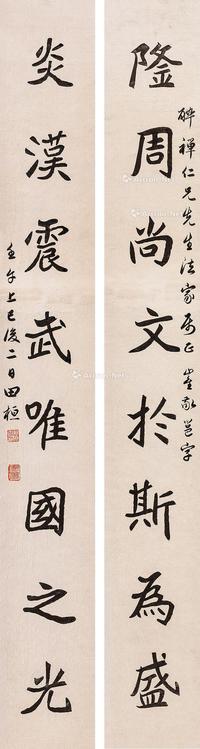 醉禪仁兄先生法家屬正 崔敬邕字
隆周尚文於斯為盛
炎漢震武唯國之光
壬午上巳後二日田桓